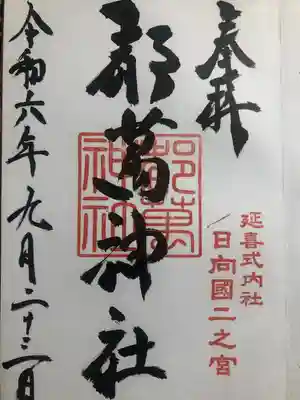 奉拝
延喜式内社
日向國二之宮
都萬神社
都萬神社
令和六年九月二十三日